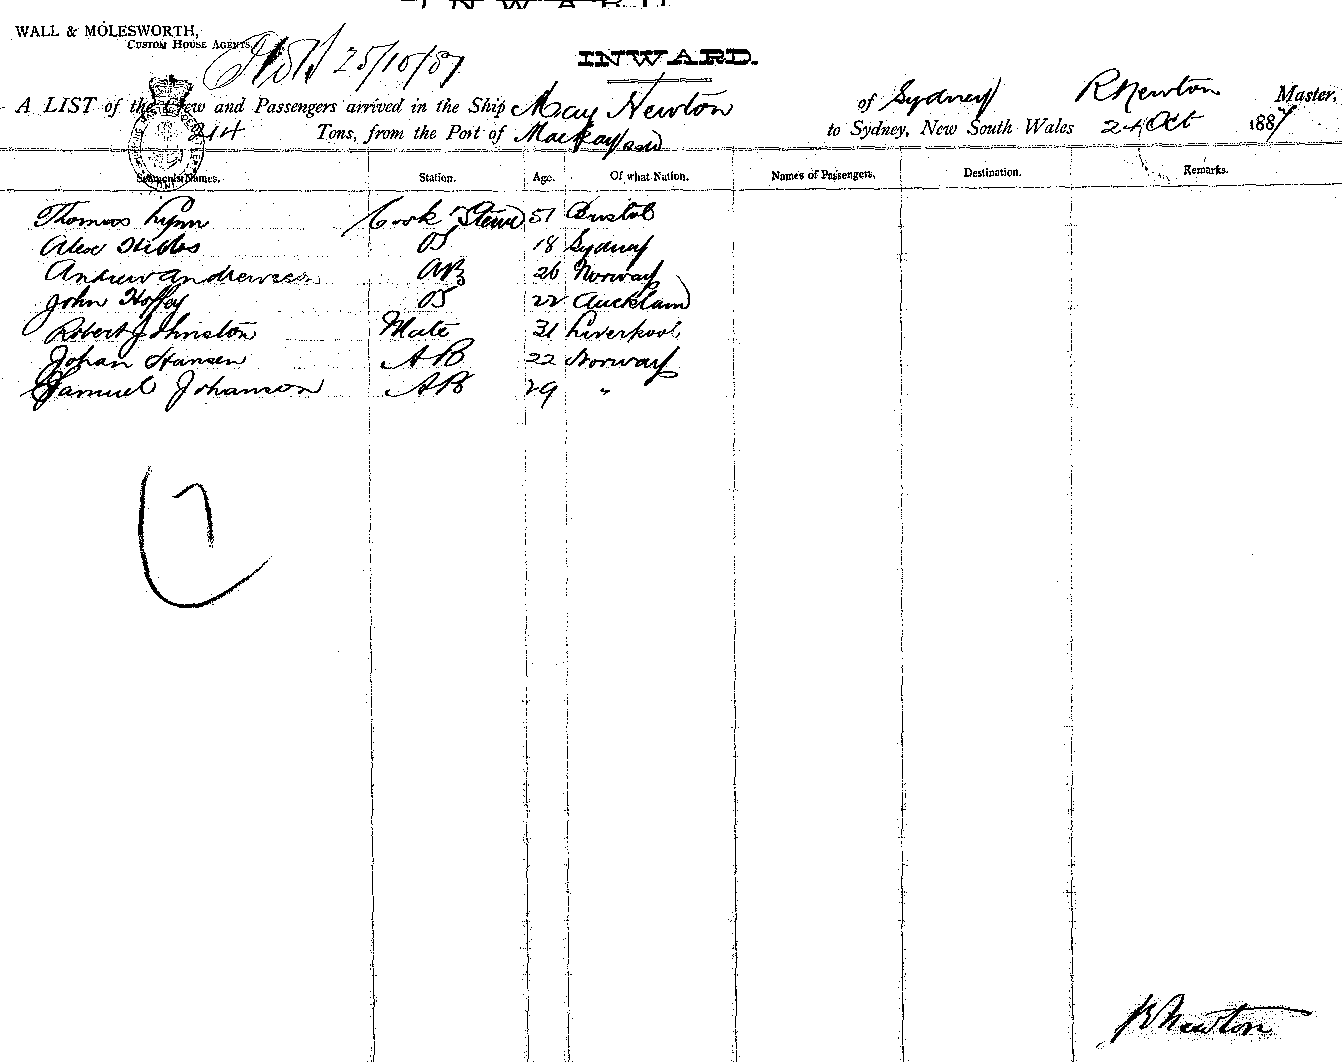 WALL & MOLESWORTH,
CUSTOM HOUSE AGENTS.
25/10/87
INWARD.
A LIST of the Crew and Passengers arrived in the Ship May Newton of Sydney R Newton Master,
214 Tons, from the Port of Mackay to Sydney, New South Wales 24 Oct 1887
Seamen's Names. Station. Age. Of what Nation. Names of Passengers. Destination. Remarks.
Thomas Lynn Cook & Stewd 51 Bristol
Alex OS 18 Sydney
Andrew Andrewsen AB 26 Norway
John Hoffey OS 22 Auckland
Robert Johnston Mate 31 Liverpool
Johan Hansen AB 22 Norway
Samuel Johanson AB 29 "
7
R Newton